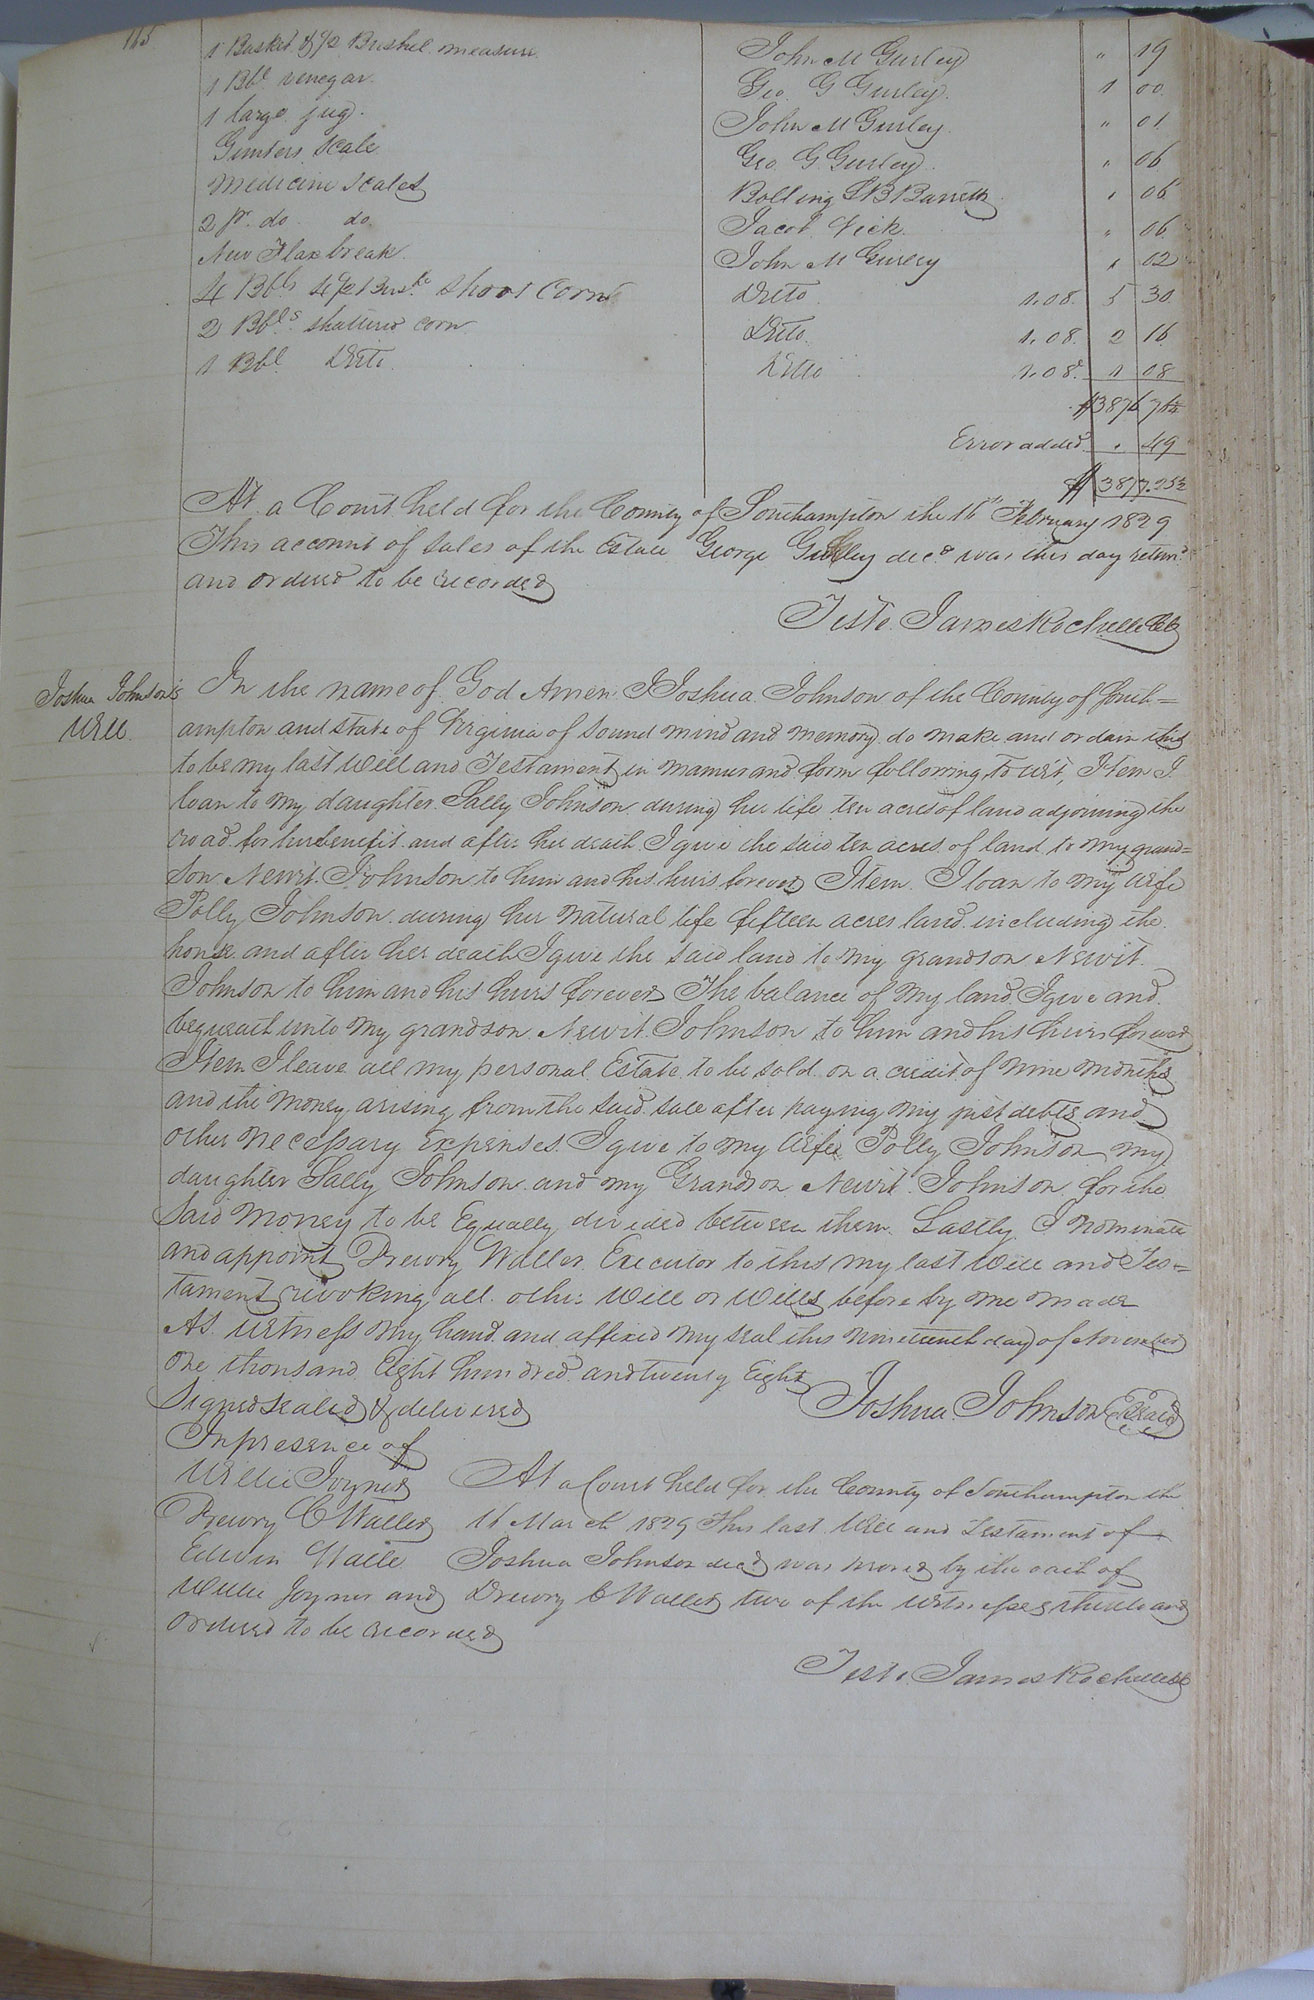 165
1 Basket & 1/2 Bushel measure John M Gurley " 19
1 Bbl venegar Geo. G Gurley. 1 00
1 large jug. John M Gurley. " 01
Gunters scale Geo. G. Gurley. " 06
Medicine scales Bolling B Barrett , 06
2 pr. do do. Jacob Vick. " 06
New Flax break. John M Gurley , 02
4 Bbls short Corn Ditto. 1.08. 5 30
2 Bbls. shattered corn Ditto. 1.08. 2 16
1 Bbl Ditto. Ditto 1.08. 1 08
Error added . 49
At a Court held for the County of Southampton the 16th February 1829
This account of sales of the Estate George Gurley decd was this day returnd
and ordered to be recorded
Teste James Rochelle Clk
Joshua Johnson's
Will.
In the name of God Amen I Joshua Johnson of the County of South=
ampton and state of Virginia of sound mind and memory do make and ordain this
to be my last Will and Testament in manner and form following, to wit, Item I
loan to my daughter Sally Johnson during her life ten acres of land adjoining the
road for her benefit and after her death I give the said ten acres of land to my grand=
son Newit Johnson to him and his heirs forever Item. I loan to my wife
Polly Johnson during her natural life fifteen acres land including the
house and after her death I give the said land to my grandson Newit
Johnson to him and his heirs forever The balance of my land I give and
bequeath unto my grandson Newit Johnson to him and his heirs forever
Item I leave all my personal Estate to be sold on a credit of nine months
and the money arising from the said sale after paying my just debts and
other necessary Expenses I give to my wife Polly Johnson my
daughter Sally Johnson and my Grandson Newit Johnson for the
said money to be Equally divided between them. Lastly I nominate
and appoint Drewry Waller Executor to this my last Will and Tes=
tament revoking all other Will or Wills before by me made
As witness my hand and affixed my seal this nineteenth day of November
One thousand Eight hundred and twenty Eight
Signed sealed & delivered Joshua Johnson (Seal)
In presence of
Willie Joyner At a Court held for the County of Southampton the
Drewry C Waller 16 March 1829 This last Will and Testament of
Edwin Joshua Johnson decd was proved by the oath of
Willie Joyner and Drewry C Waller two of the witnesses thereto and
ordered to be recorded
Teste James Rochelle Clk